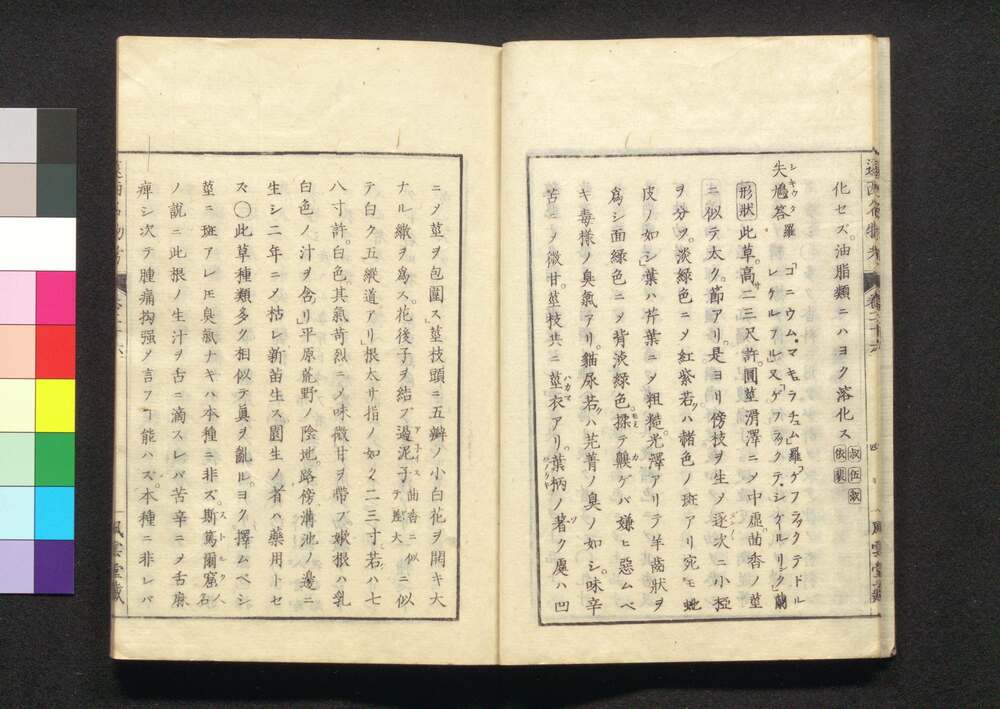 化セズ。油脂類ニハヨク溶化ス
失鳩答 シキウタ 羅「コニウム。マキュラチュム」羅「ゲフラックテドル
レケルフル」又「ゲフラックテ。シケイルリンク」蘭
形狀 此草。高サ二三尺許。圓莖滑澤ニメ中虛。茴香ノ莖
ニ似テ太ク。節アリ。是ヨリ傍枝ヲ生メ逐次ニ小極
ヲ分ツ。淡緑色ニメ紅紫若クハ諸色ノ斑アリ宛モ蛇
皮ノ如シ」葉ハ芹葉ニメ粗糙。光澤アリテ羊齒狀ヲ
爲シ面緑色ニメ背淡緑色。揉テ齅ゲバ嫌ヒ惡ムベ
キ毒樣ノ臭氣アリ。貓尿若クハ芫菁ノ臭ノ如シ。味辛
苦ニメ微甘。莖枝共ニ莖衣アリ。葉柄ノ著ク處ハ凹
ニメ莖ヲ包圍ス莖枝頭ニ五瓣ノ小白花ヲ開キ大
ナル繖ヲ爲ス。花後子ヲ結ブ遏泥子 茴香ニ似テ大 ニ似
テ白ク五縱道アリ」根太サ指ノ如ク二三寸若クハ七
八寸許。白色其氣苛烈ニメ味微甘ヲ帶ブ嫩根ハ乳
白色ノ汁ヲ含ム」平原荒野ノ陰地。路傍溝池ノ邊ニ
生シ二年ニメ枯レ新苗生ス。園生ノ者ハ藥用トセ
ズ〇此草種類多ク相似テ眞ヲ亂ル。ヨク擇ムベシ
莖ニ斑アレ𪜈臭氣ナキハ本種ニ非ズ。斯篤爾窟 人名
ノ說ニ此根ノ生汁ヲ舌ニ滴スレバ苦辛ニメ舌麻
痺シ次テ腫痛拘强メ言フヿ能ハズ。本種ニ非レバ
風雲堂藏